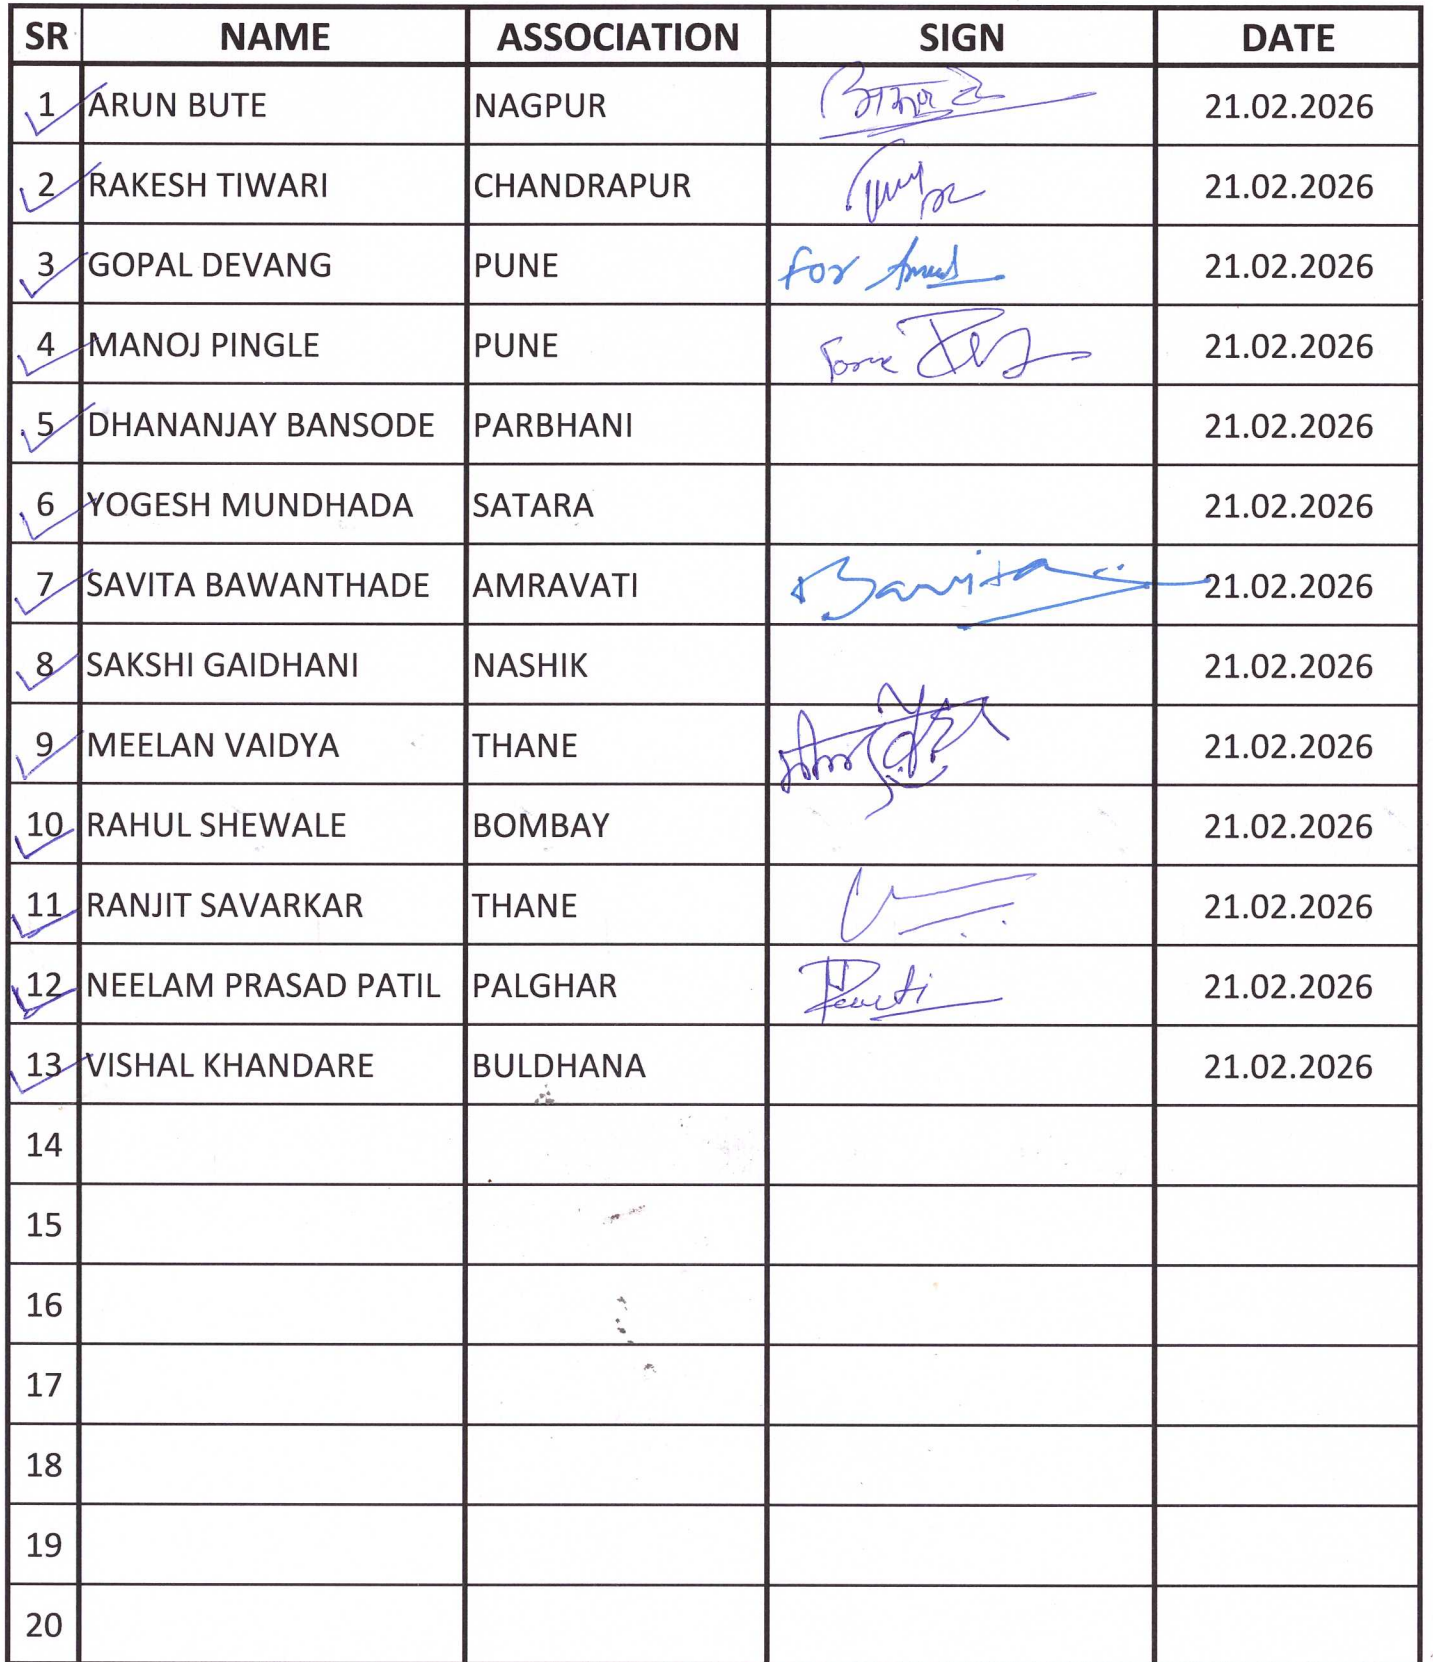 SR NAME ASSOCIATION SIGN DATE
1 ARUN BUTE NAGPUR 21.02.2026
2 RAKESH TIWARI CHANDRAPUR 21.02.2026
3 GOPAL DEVANG PUNE For 21.02.2026
4 MANOJ PINGLE PUNE 21.02.2026
5 DHANANJAY BANSODE PARBHANI 21.02.2026
6 YOGESH MUNDHADA SATARA 21.02.2026
7 SAVITA BAWANTHADE AMRAVATI 21.02.2026
8 SAKSHI GAIDHANI NASHIK 21.02.2026
9 MEELAN VAIDYA THANE 21.02.2026
10 RAHUL SHEWALE BOMBAY 21.02.2026
11 RANJIT SAVARKAR THANE 21.02.2026
12 NEELAM PRASAD PATIL PALGHAR 21.02.2026
13 VISHAL KHANDARE BULDHANA 21.02.2026
14
15
16
17
18
19
20